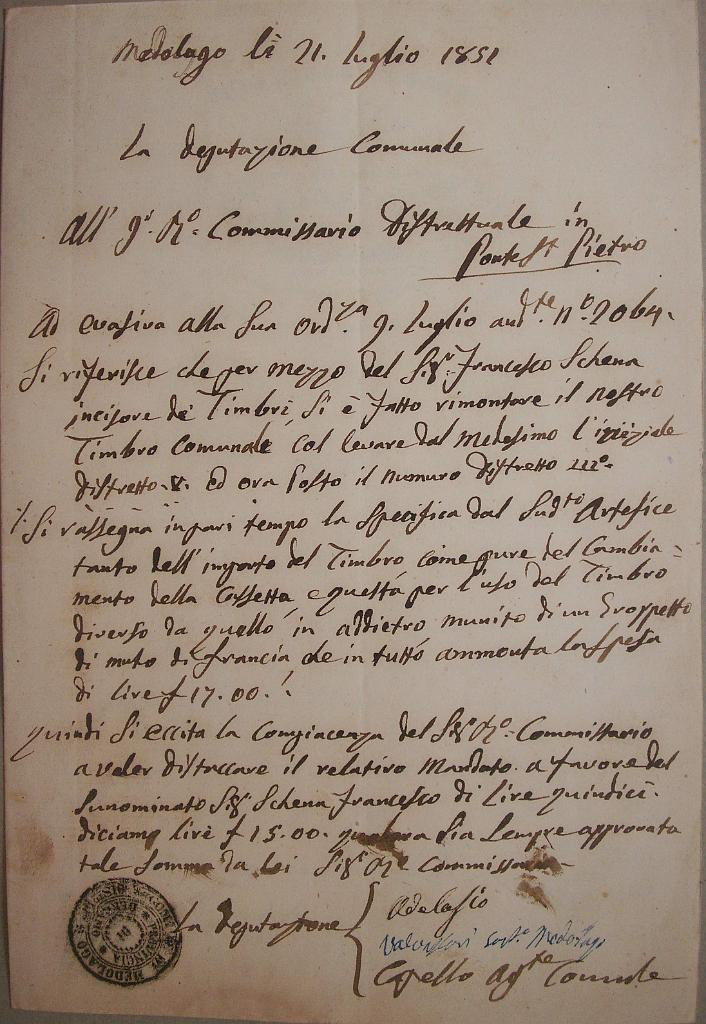 Medolago li 21. Luglio 1851
La Deputazione Comunale
All' I. R.° Commissario Distrettuale in
Ponte St. Pietro
Ad evasiva alla Sua Ord.za 9. Luglio and.te N.° 2064.
Si riferisce che per mezzo del Sig.r Francesco Schena
incisore de Timbri si è fatto rimontare il nostro
Timbro Comunale, col levare dal Medesimo l'iniziale
Distretto V. ed ora posto il numero Distretto III°.
Si rassegna in pari tempo la Specifica dal Sud.to Artefice
tanto dell'importo del Timbro come pure del Cambia=
mento della Cassetta e questa per l'uso del Timbro
diverso da quello in addietro munito di un
di di Francia che in tutto ammonta la spesa
di lire £ 17.00.
Quindi si eccita la Compiacenza del Sig.r R.° Commissario
a voler distaccare il relativo Mandato a favore del
Sunominato Sig.r Schena Francesco di Lire quindici
diciamo lire £ 15.00. qualora sia sempre approvata
tale somma da Lei Sig.r R.° Commissario
La Deputazione
Adelasio
Medolago
Capello Ag.te Comunale
MEDOLAGO
PROVINCIA